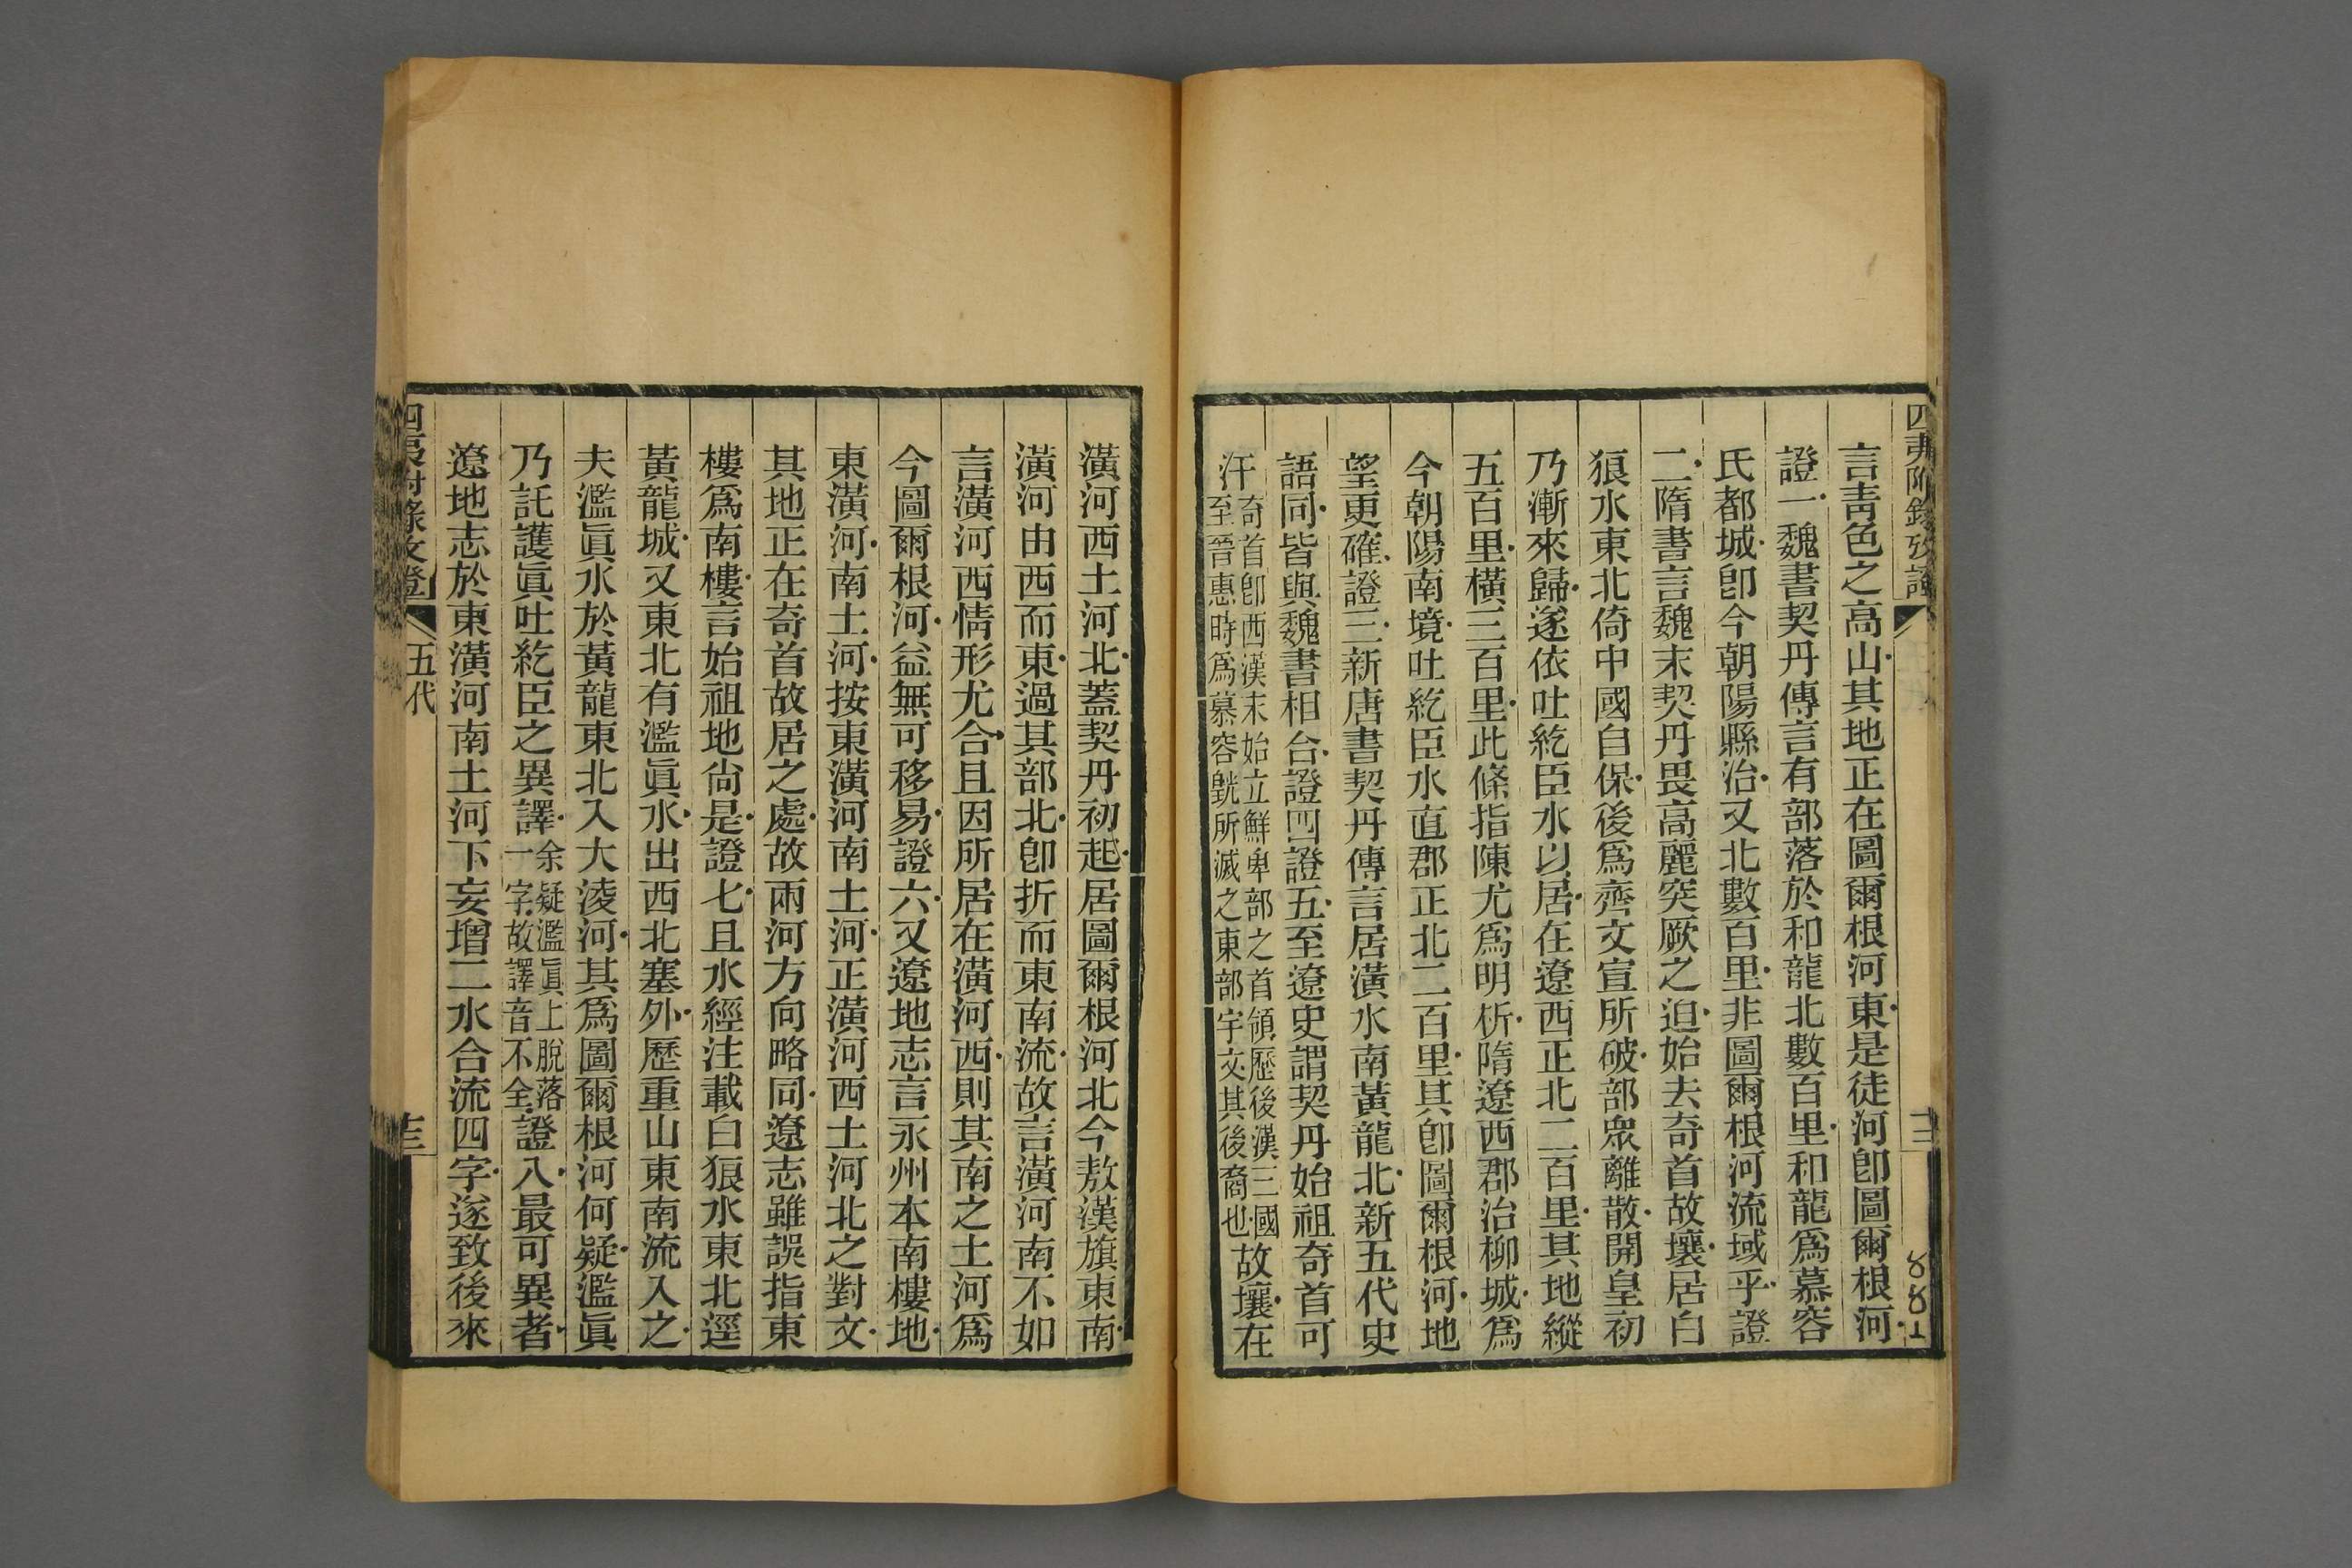 四夷附錄攷證
言靑色之高山其地正在圖爾根河東是徒河卽圖爾根河
證一魏書契丹傳言有部落於和龍北數百里和龍爲慕容
氏都城卽今朝陽縣治又北數百里非圖爾根河流域乎證
二隋書言魏末契丹畏高麗突厥之迫始去奇首故壤居白
狼水東北倚中國自保後爲齊文宣所破部衆離散開皇初
乃漸來歸遂依吐紇臣水以居在遼西正北二百里其地縱
五百里橫三百里此條指陳尤爲明析隋遼西郡治柳城爲
今朝陽南境吐紇臣水直郡正北二百里其卽圖爾根河地
望更確證三新唐書契丹傳言居潢水南黃龍北新五代史
語同皆與魏書相合證四證五至遼史謂契丹始祖奇首可
汗奇首卽西漢末始立鮮卑部之首領歷後漢三國至晉惠時爲慕容皝所滅之東部宇文其後裔也故壤在
潢河西土河北蓋契丹初起居圖爾根河北今敖漢旗東南
潢河由西而東過其部北卽折而東南流故言潢河南不如
言潢河西情形尤合且因所居在潢河西則其南之土河爲
今圖爾根河益無可移易證六又遼地志言永州本南樓地
東潢河南土河按東潢河南土河正潢河西土河北之對文
其地正在奇首故居之處故兩河方向略同遼志雖誤指東
樓爲南樓言始祖地尙是證七且水經注載白狼水東北逕
黃龍城又東北有濫眞水出西北塞外歷重山東南流入之
夫濫眞水於黃龍東北入大淩河其爲圖爾根河何疑濫眞
乃託護眞吐紇臣之異譯余疑濫眞上脫落一字故譯音不全證八最可異者
遼地志於東潢河南土河下妄增二水合流四字遂致後來
四夷附錄攷證
五代